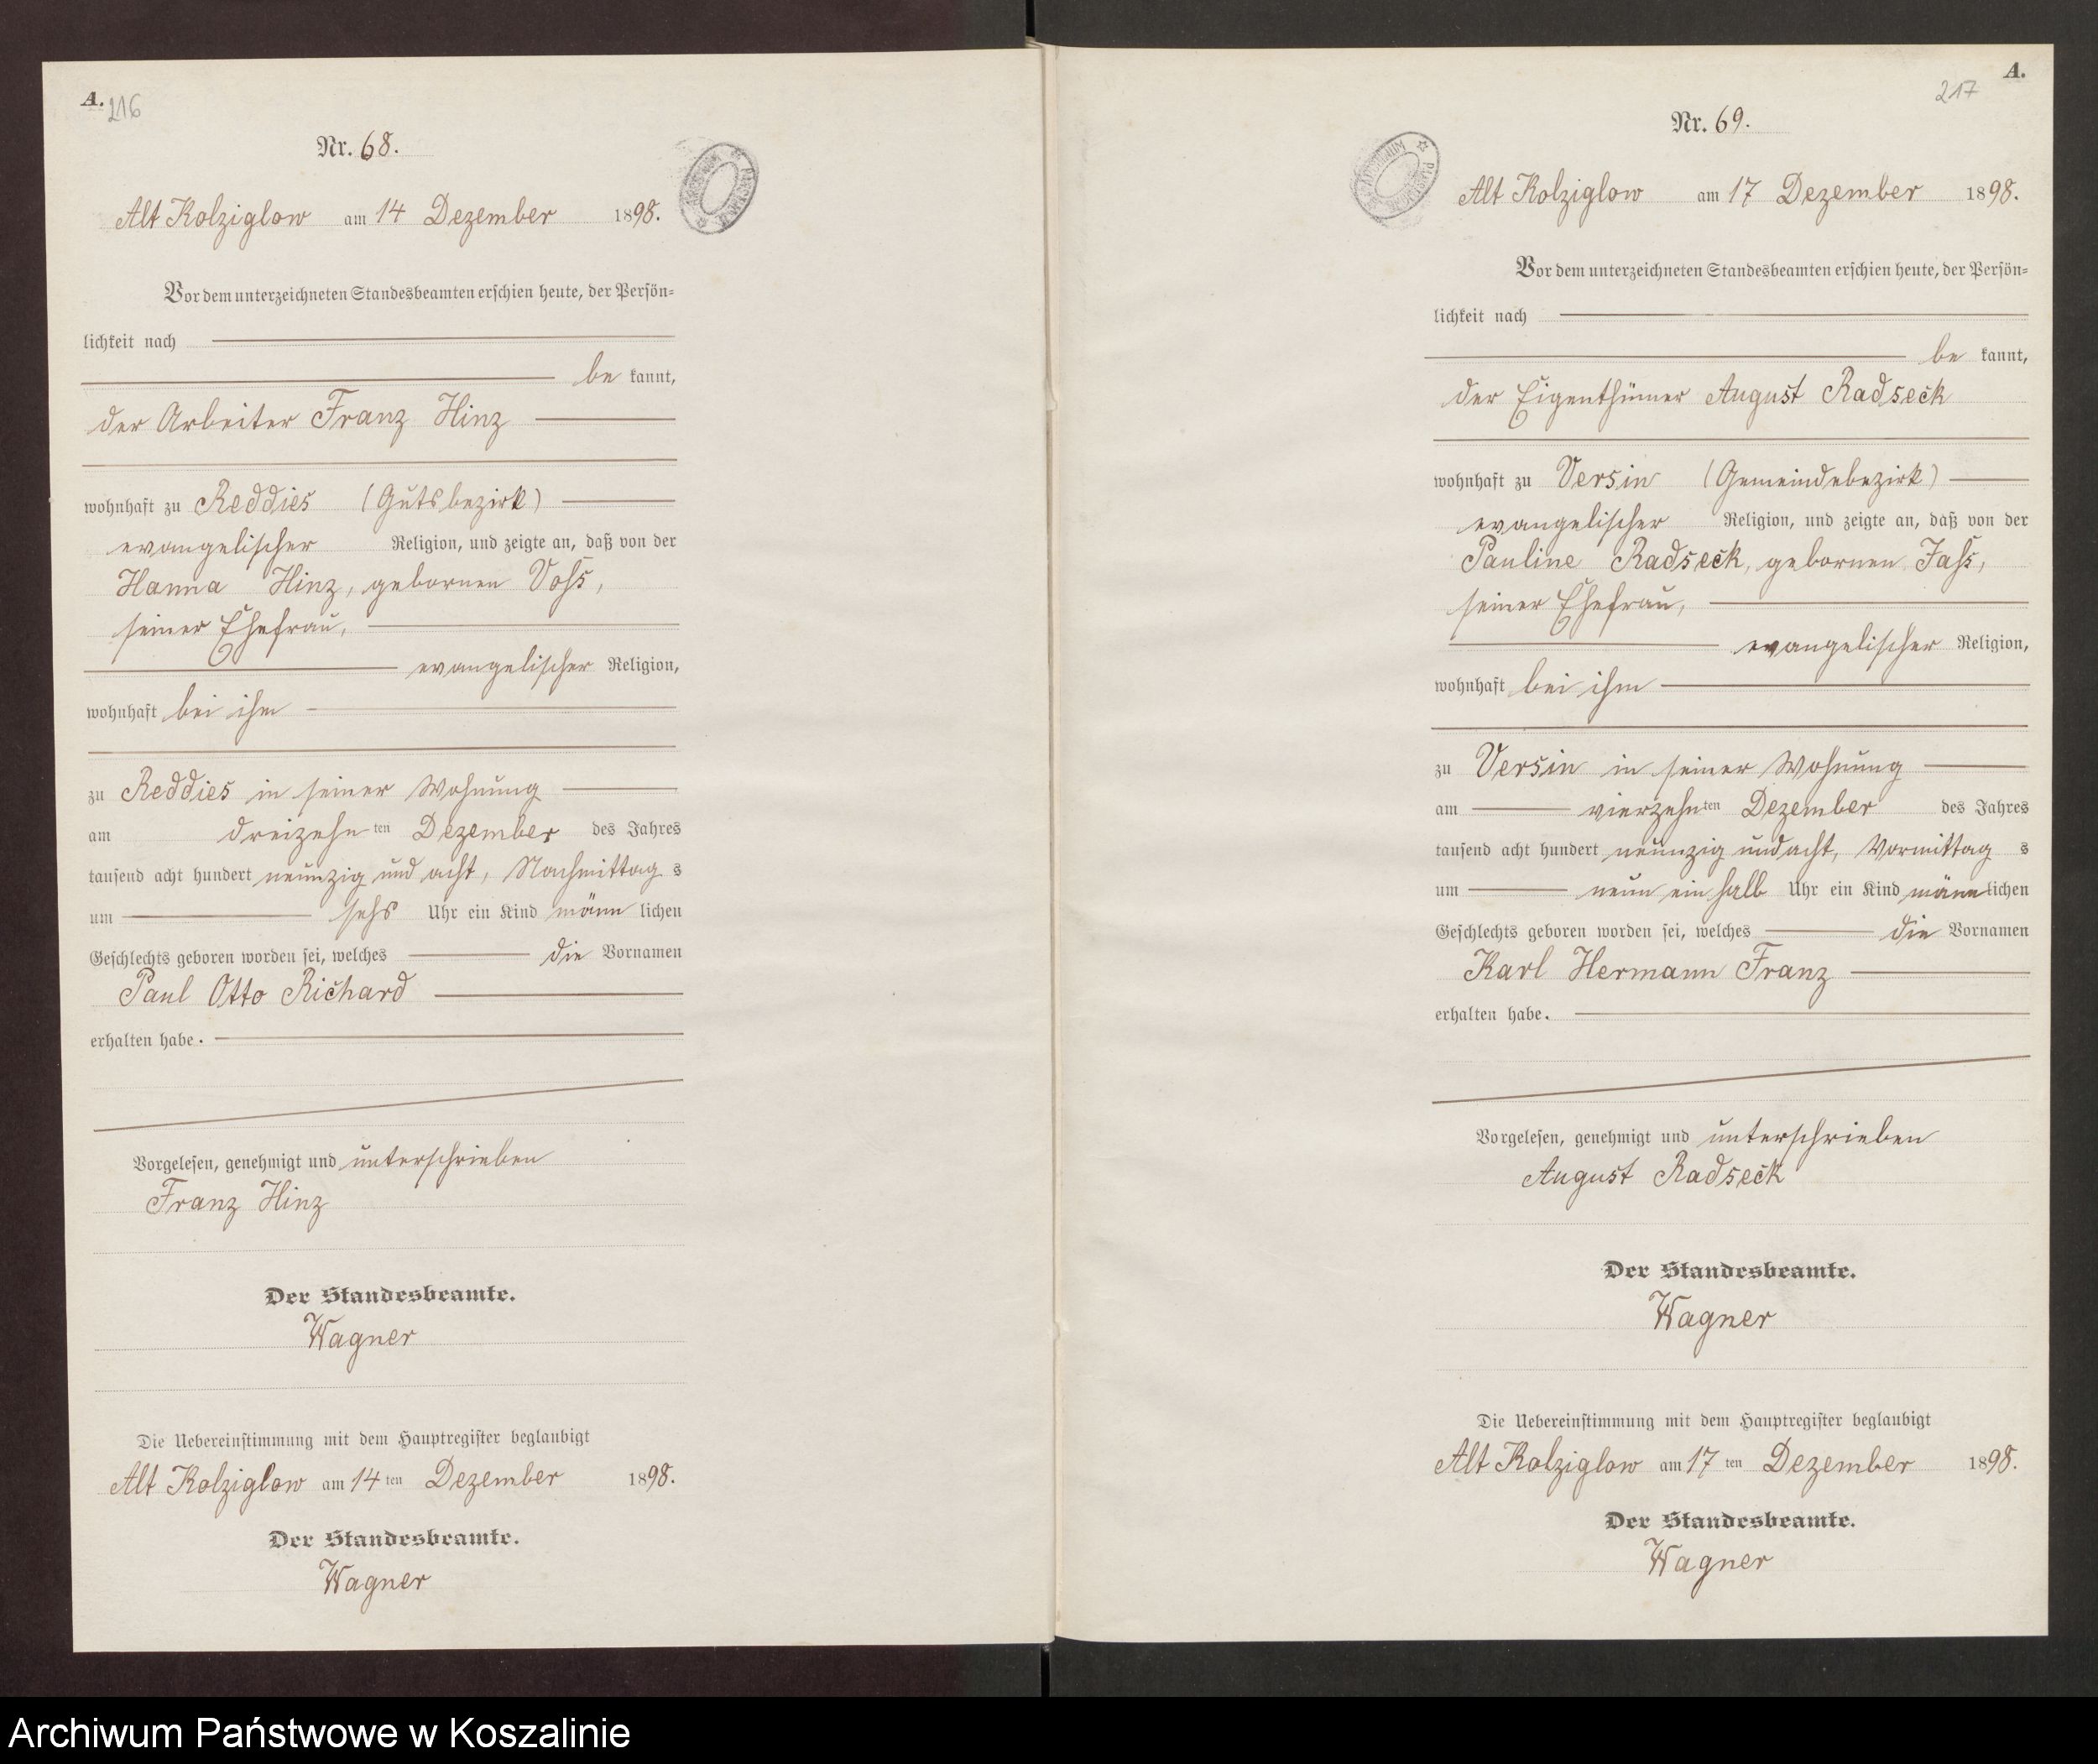 A. 216
Nr. 68.
Alt Kolziglow am 14 Dezember 1898.
Vor dem unterzeichneten Standesbeamten erschien heute, der Persön-
lichkeit nach
be kannt,
der Arbeiter Franz Hinz
wohnhaft zu Reddies (Gutsbezirk)
evangelischer Religion, und zeigte an, daß von der
Hanna Hinz, gebornen Voß,
seiner Ehefrau,
evangelischer Religion,
wohnhaft bei ihm
zu Reddies in seiner Wohnung
am dreizehnten Dezember des Jahres
tausend acht hundert neunzig und acht, Nachmittags
um sechs Uhr ein Kind männlichen
Geschlechts geboren worden sei, welches die Vornamen
Paul Otto Richard
erhalten habe.
Vorgelesen, genehmigt und unterschrieben
Franz Hinz
Der Standesbeamte.
Wagner
Die Uebereinstimmung mit dem Hauptregister beglaubigt
Alt Kolziglow am 14ten Dezember 1898.
Der Standesbeamte.
Wagner
A.
217
Nr. 69.
Alt Kolziglow am 17 Dezember 1898.
Vor dem unterzeichneten Standesbeamten erschien heute, der Persön-
lichkeit nach
be kannt,
der Eigenthümer August Radseck
wohnhaft zu Versin (Gemeindebezirk)
evangelischer Religion, und zeigte an, daß von der
Pauline Radseck, gebornen Jaß,
seiner Ehefrau,
evangelischer Religion,
wohnhaft bei ihm
zu Versin in seiner Wohnung
am vierzehnten Dezember des Jahres
tausend acht hundert neunzig und acht, Vormittags
um neun ein halb Uhr ein Kind männlichen
Geschlechts geboren worden sei, welches die Vornamen
Karl Hermann Franz
erhalten habe.
Vorgelesen, genehmigt und unterschrieben
August Radseck
Der Standesbeamte.
Wagner
Die Uebereinstimmung mit dem Hauptregister beglaubigt
Alt Kolziglow am 17ten Dezember 1898.
Der Standesbeamte.
Wagner
Archiwum Państwowe w Koszalinie